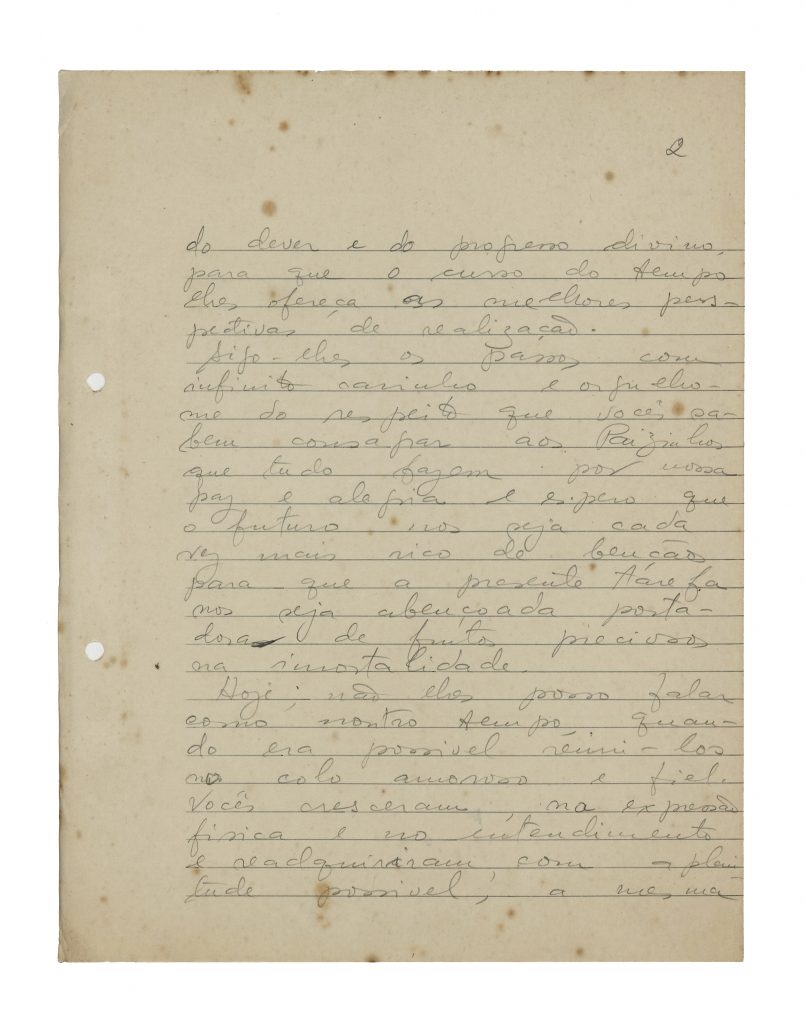 2
do dever e do progresso divino,
para que o curso do tempo
lhes ofereça as melhores pers-
pectivas de realização.
Sigo-lhes os passos com
infinito carinho e orgulho-
me do respeito que vocês sa-
bem consagrar aos Paizinhos
que tudo fazem por nossa
paz e alegria e espero que
o futuro nos seja cada
vez mais rico de bençãos
para que a presente tarefa
nos seja abençoada porta-
dora de frutos preciosos
na imortalidade.
Hoje, não lhes posso falar
como noutro tempo quan-
do era possivel reuni-los
no colo amoroso e fiel.
Vocês cresceram, na expressão
fisica e no entendimento
e readquiriram com a pleni
tude possivel, a mesma